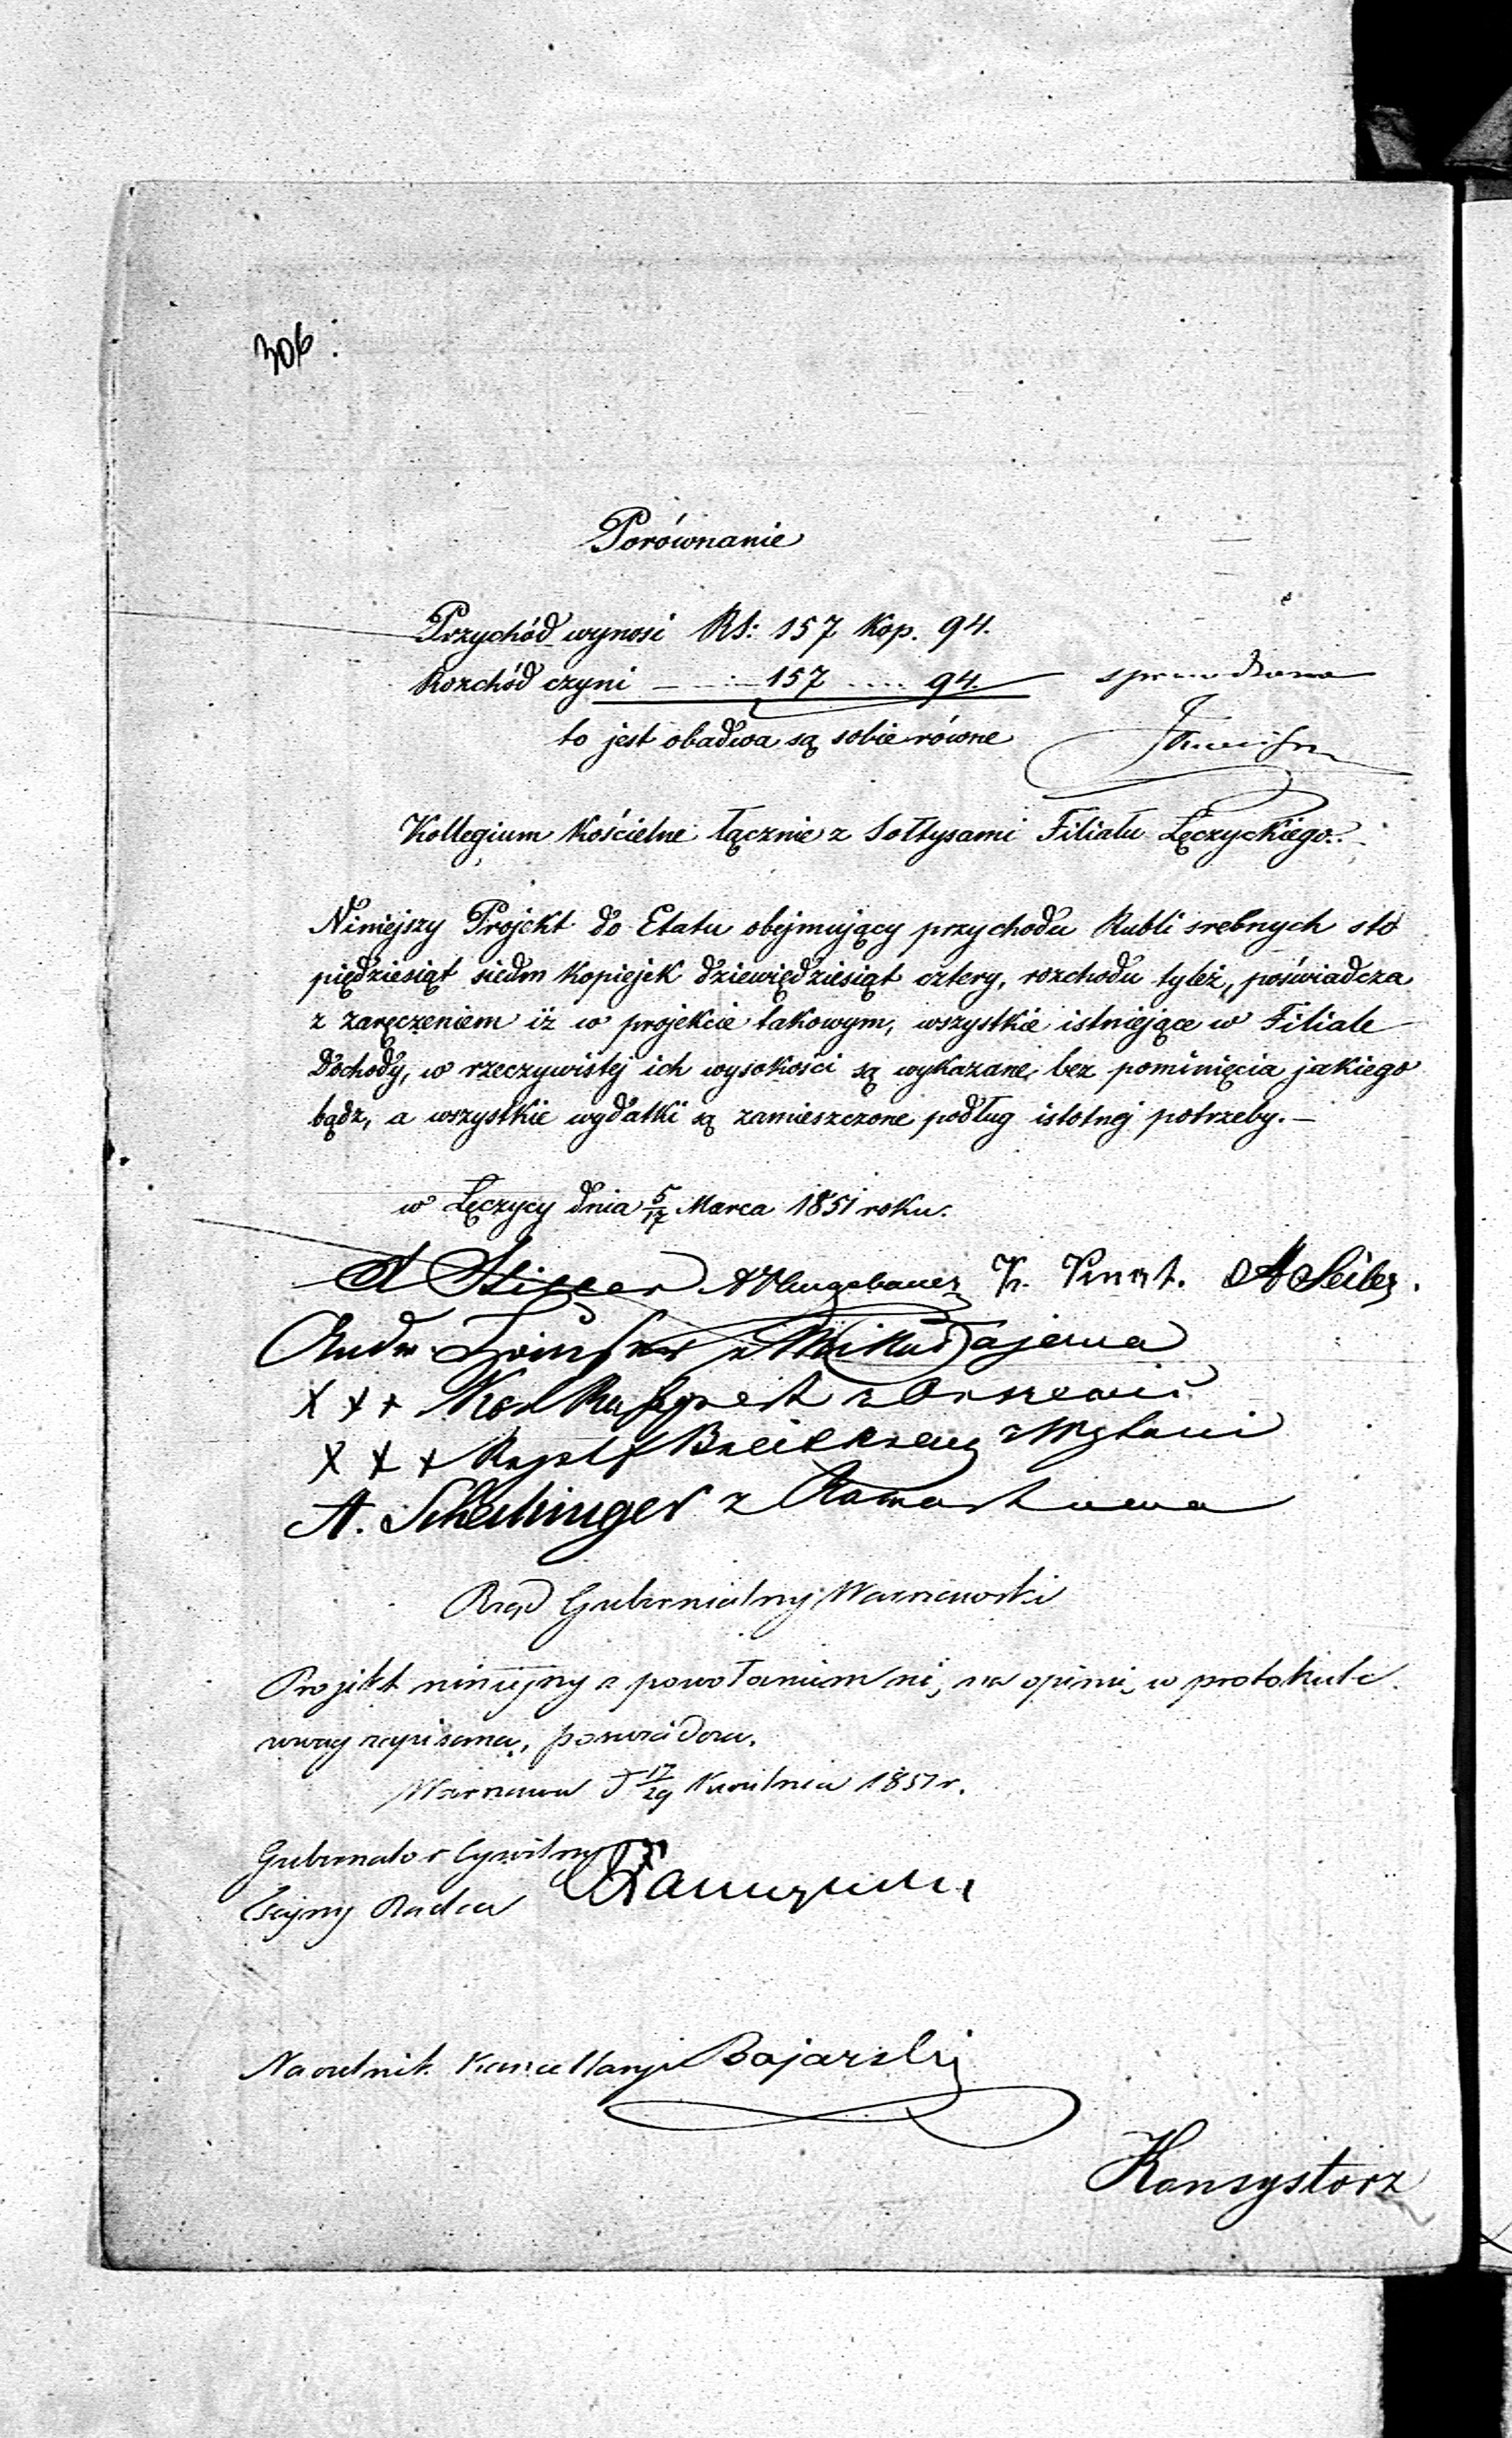 306
Porównanie
Przychód wynosi RS: 157 Kop. 94.
Rozchód czyni — ..... 157 .... 94.
to jest obadwa są sobie równe
Kollegium Kościelne łącznie z Sołtysami Filiału Łęczyckiego.
Niniejszy Projekt do Etatu obejmujący przychodu Rubli srebnych sto
pięździesiąt siedm Kopiejek dziewiędziesiąt cztery, rozchodu tyleż, poświadcza
z zaręczeniem iż w projekcie takowym, wszystkie istniejące w Filiale
Dochody, w rzeczywistej ich wysokości są wykazane, bez pominięcia jakiego
bądz, a wszystkie wydatki są zamieszczone podług istotnej potrzeby. —
w Łęczycy dnia 5/17 Marca 1851 roku.
A Seiler.
Andr.
x x x Karl z
x x x z
A. z
Rząd Gubernialny Warszawski
Projekt niniejszy z powołaniem się na opinię w protokule
uwag zapisaną, poswiadcza.
Warszawa d 17/29 Kwietnia 1851 r.
Gubernator Cywilny
Tajny Radca
Naczelnik Kancellaryi Bojarski
Konsystorz